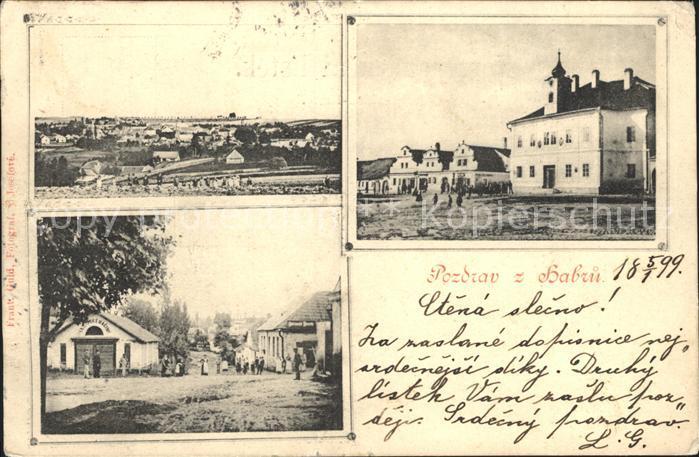 Pozdrav z Habrů. 18 5/1 99.
Ctěná slečno!
Za zaslané dopisnice nej„
srdečnější díky. Druhý
lístek Vám zašlu poz„
ději. Srdečný pozdrav“
L. G.
Frant. Fotograf.
Copy Protection Kopierschutz